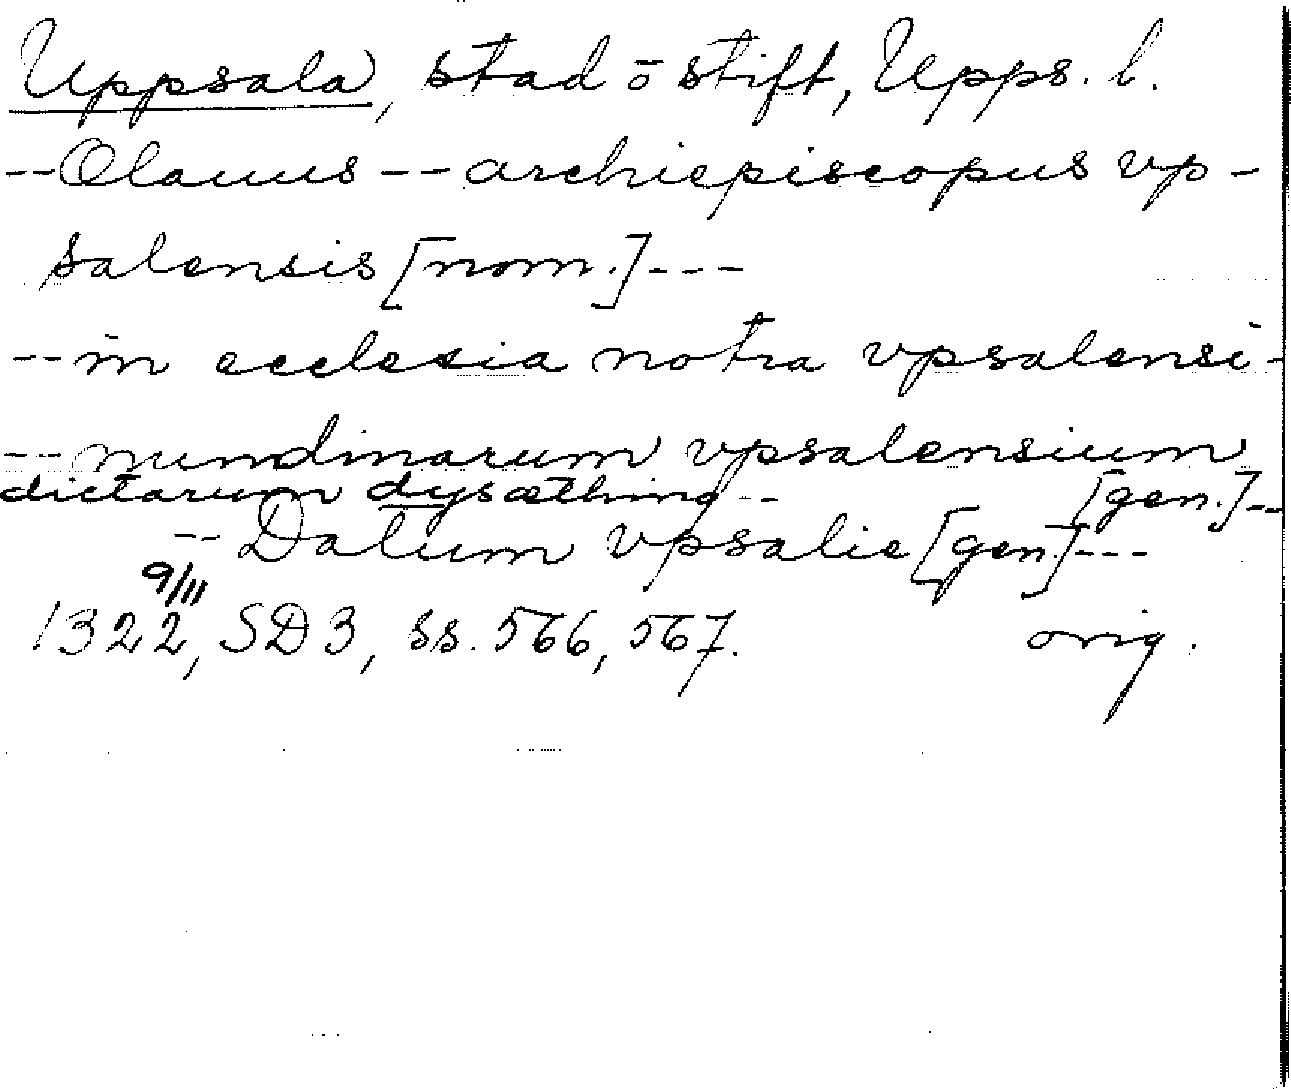 Uppsala, stad o stift, Upps. l.
--Olauus -- archiepiscopus vp-
salensis [nom.] ---
--in ecclesia nostra vpsalensi-
--nundinarum vpsalensium
dictarum dysæthing-- [gen.]--
-- Datum vpsalie [gen.]---
9/11
1322, SD3, ss. 566, 567. orig.